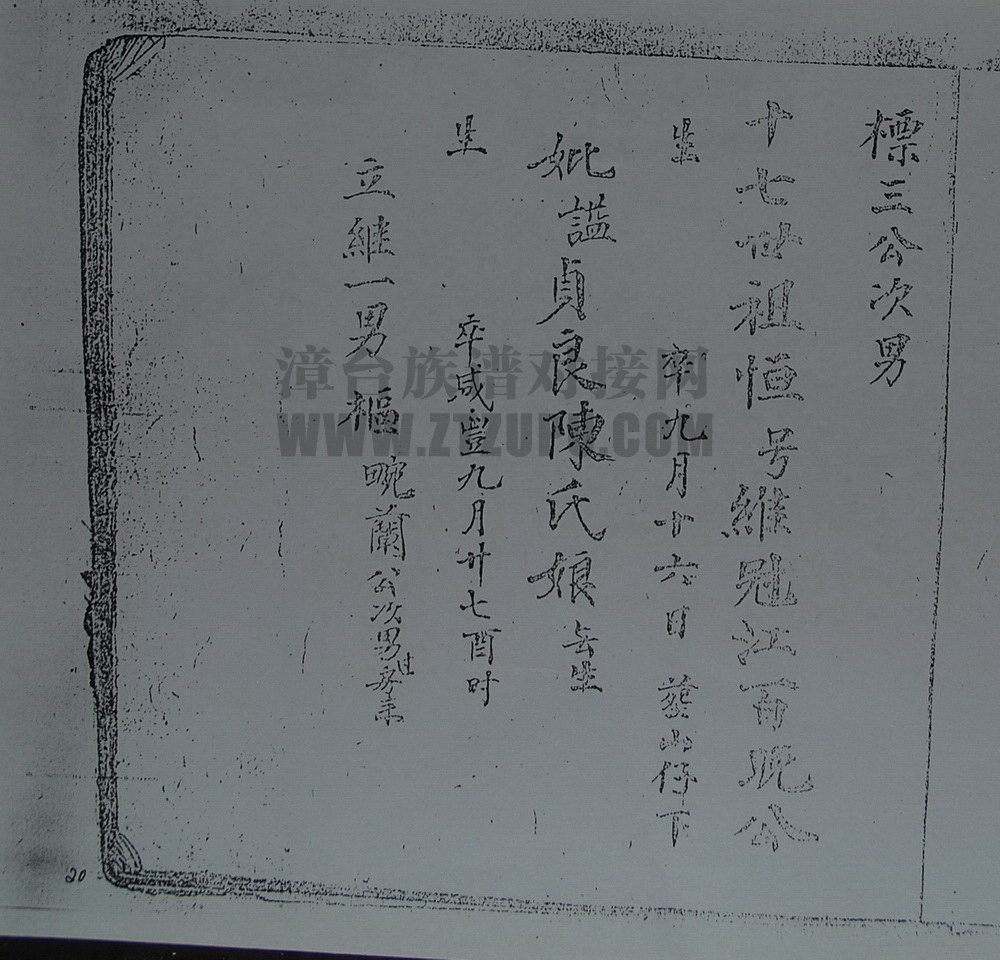 標三公次男
十七世祖恒号維冠江百晚公
生
卒九月十六日 葬山仔下
妣謚貞良陳氏娘 去生
生
卒咸豊九月廿七酉时
立継一男 樞 畹蘭公次男房
漳台族谱对接网
WWW.ZTZUPU.COM
20